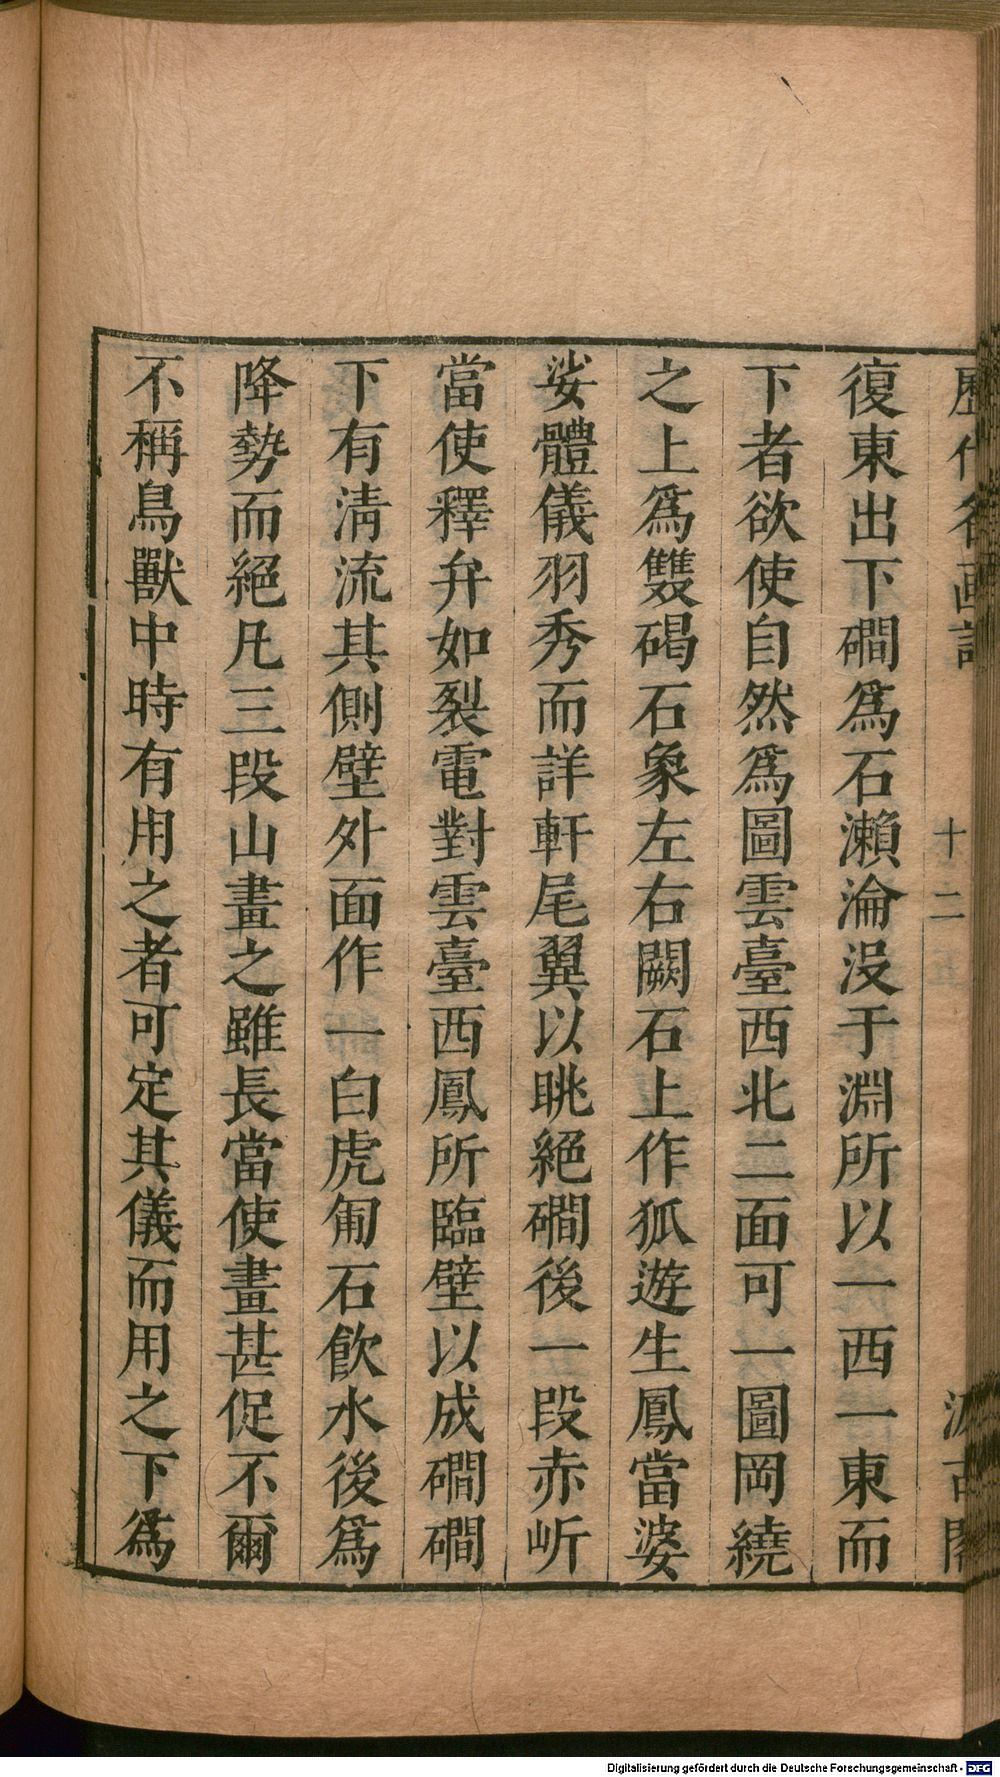 歷代名画記
十二
汲古閣
復東出下磵爲石瀨淪没于淵所以一西一東而
下者欲使自然爲圖雲臺西北二面可一圖岡繞
之上爲雙碣石象左右闕石上作狐遊生鳳當婆
娑體儀羽秀而詳軒尾翼以眺絕磵後一段赤岓
當使釋弁如裂電對雲臺西鳳所臨壁以成磵磵
下有淸流其側壁外面作一白虎匍石飮水後爲
降勢而絕凡三段山畫之雖長當使畫甚促不爾
不稱鳥獸中時有用之者可定其儀而用之下爲
Digitalisierung gefördert durch die Deutsche Forschungsgemeinschaft - DFG